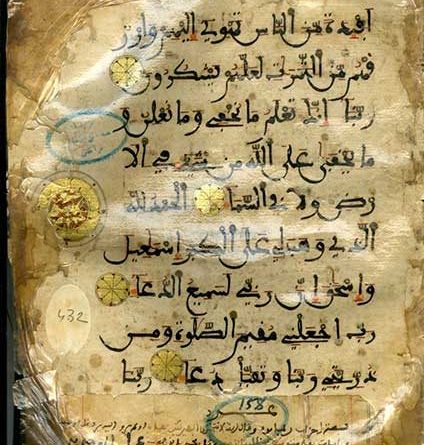 افئدة من الناس تهوي اليهم وارز
قهم من الثمرت لعلهم يشكرون
ربنا انك تعلم ما نخفي وما نعلن و
ما يخفى على الله من شيء في الا
رض ولا في السما الحمد لله
الذي وهب لي على الكبر اسمعيل
واسحق ان ربي لسميع الدعا
432
رب اجعلني مقيم الصلوة ومن
ذريتي ربنا وتقبل دعا ربنا
158